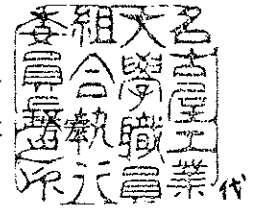 名古屋工業
大學職員
組合執行
委員長之印
代